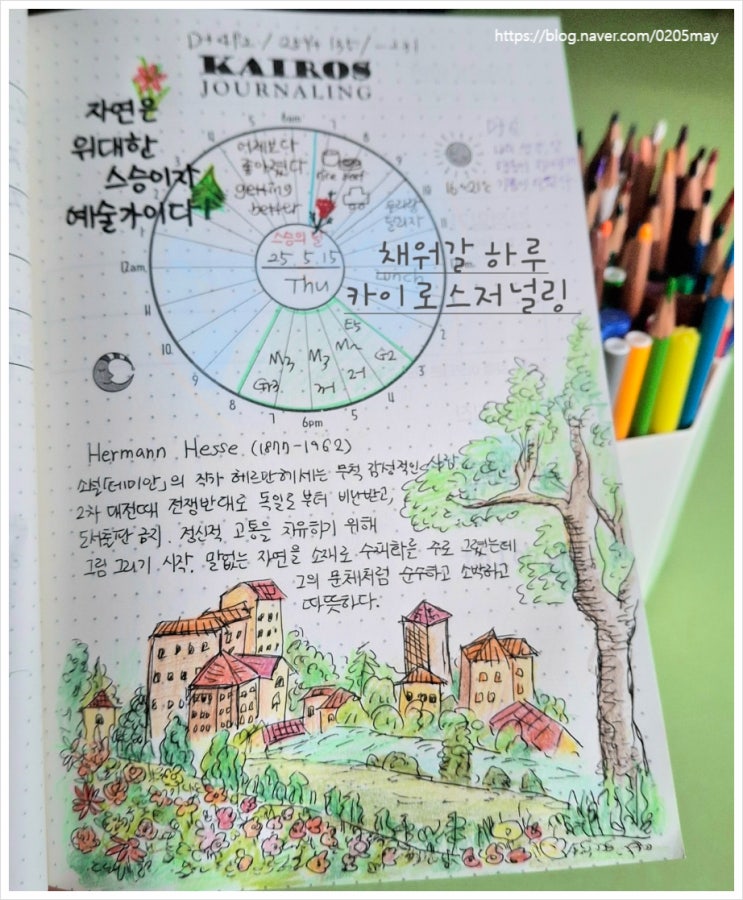 https://blog.naver.com/0205may
KAIROS
JOURNALING
자연은
위대한
스승이자
예술가이다!
6am
7
8
9
10
어제보다
좋아졌다
getting
better
16~21℃
스승의 날
25. 5. 15
Thu
채워갈 하루
카이로스저널링
12am
11
10
9
8
7
6pm
5
4
3
2
E5
M3
M3
G2
G3
Hermann Hesse (1877-1962)
소설「데미안」의 작가 헤르만헤세는 무척 감성적인 사람
2차 대전때 전쟁반대로 독일로부터 비난받고,
도서출판 금지. 정신적 고통을 치유하기 위해
그림 그리기 시작. 말없는 자연을 소재로 수채화를 주로 그렸는데
그의 문체처럼 순수하고 소박하고
따뜻하다.